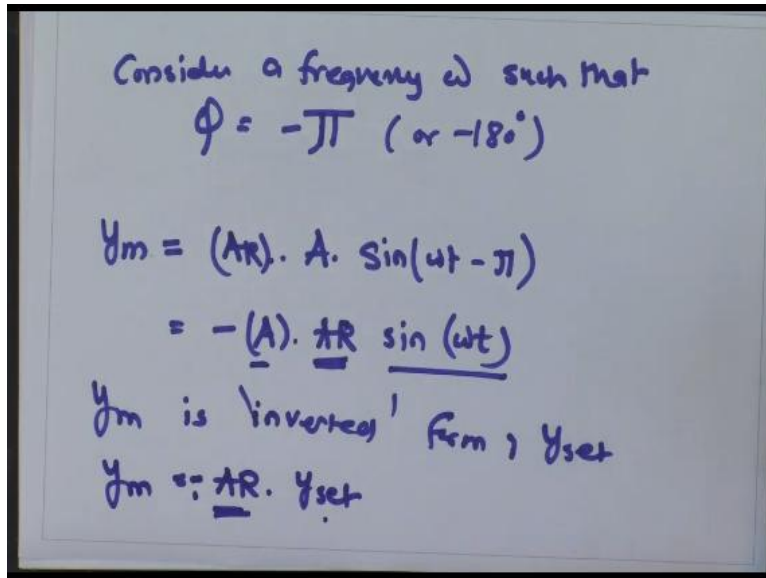 Consider a frequency ω such that
φ = -π (or -180°)
ym = (AR). A. Sin(ωt - π)
= -(A). AR sin (ωt)
ym is 'inverted' form, yset
ym =- AR. yset